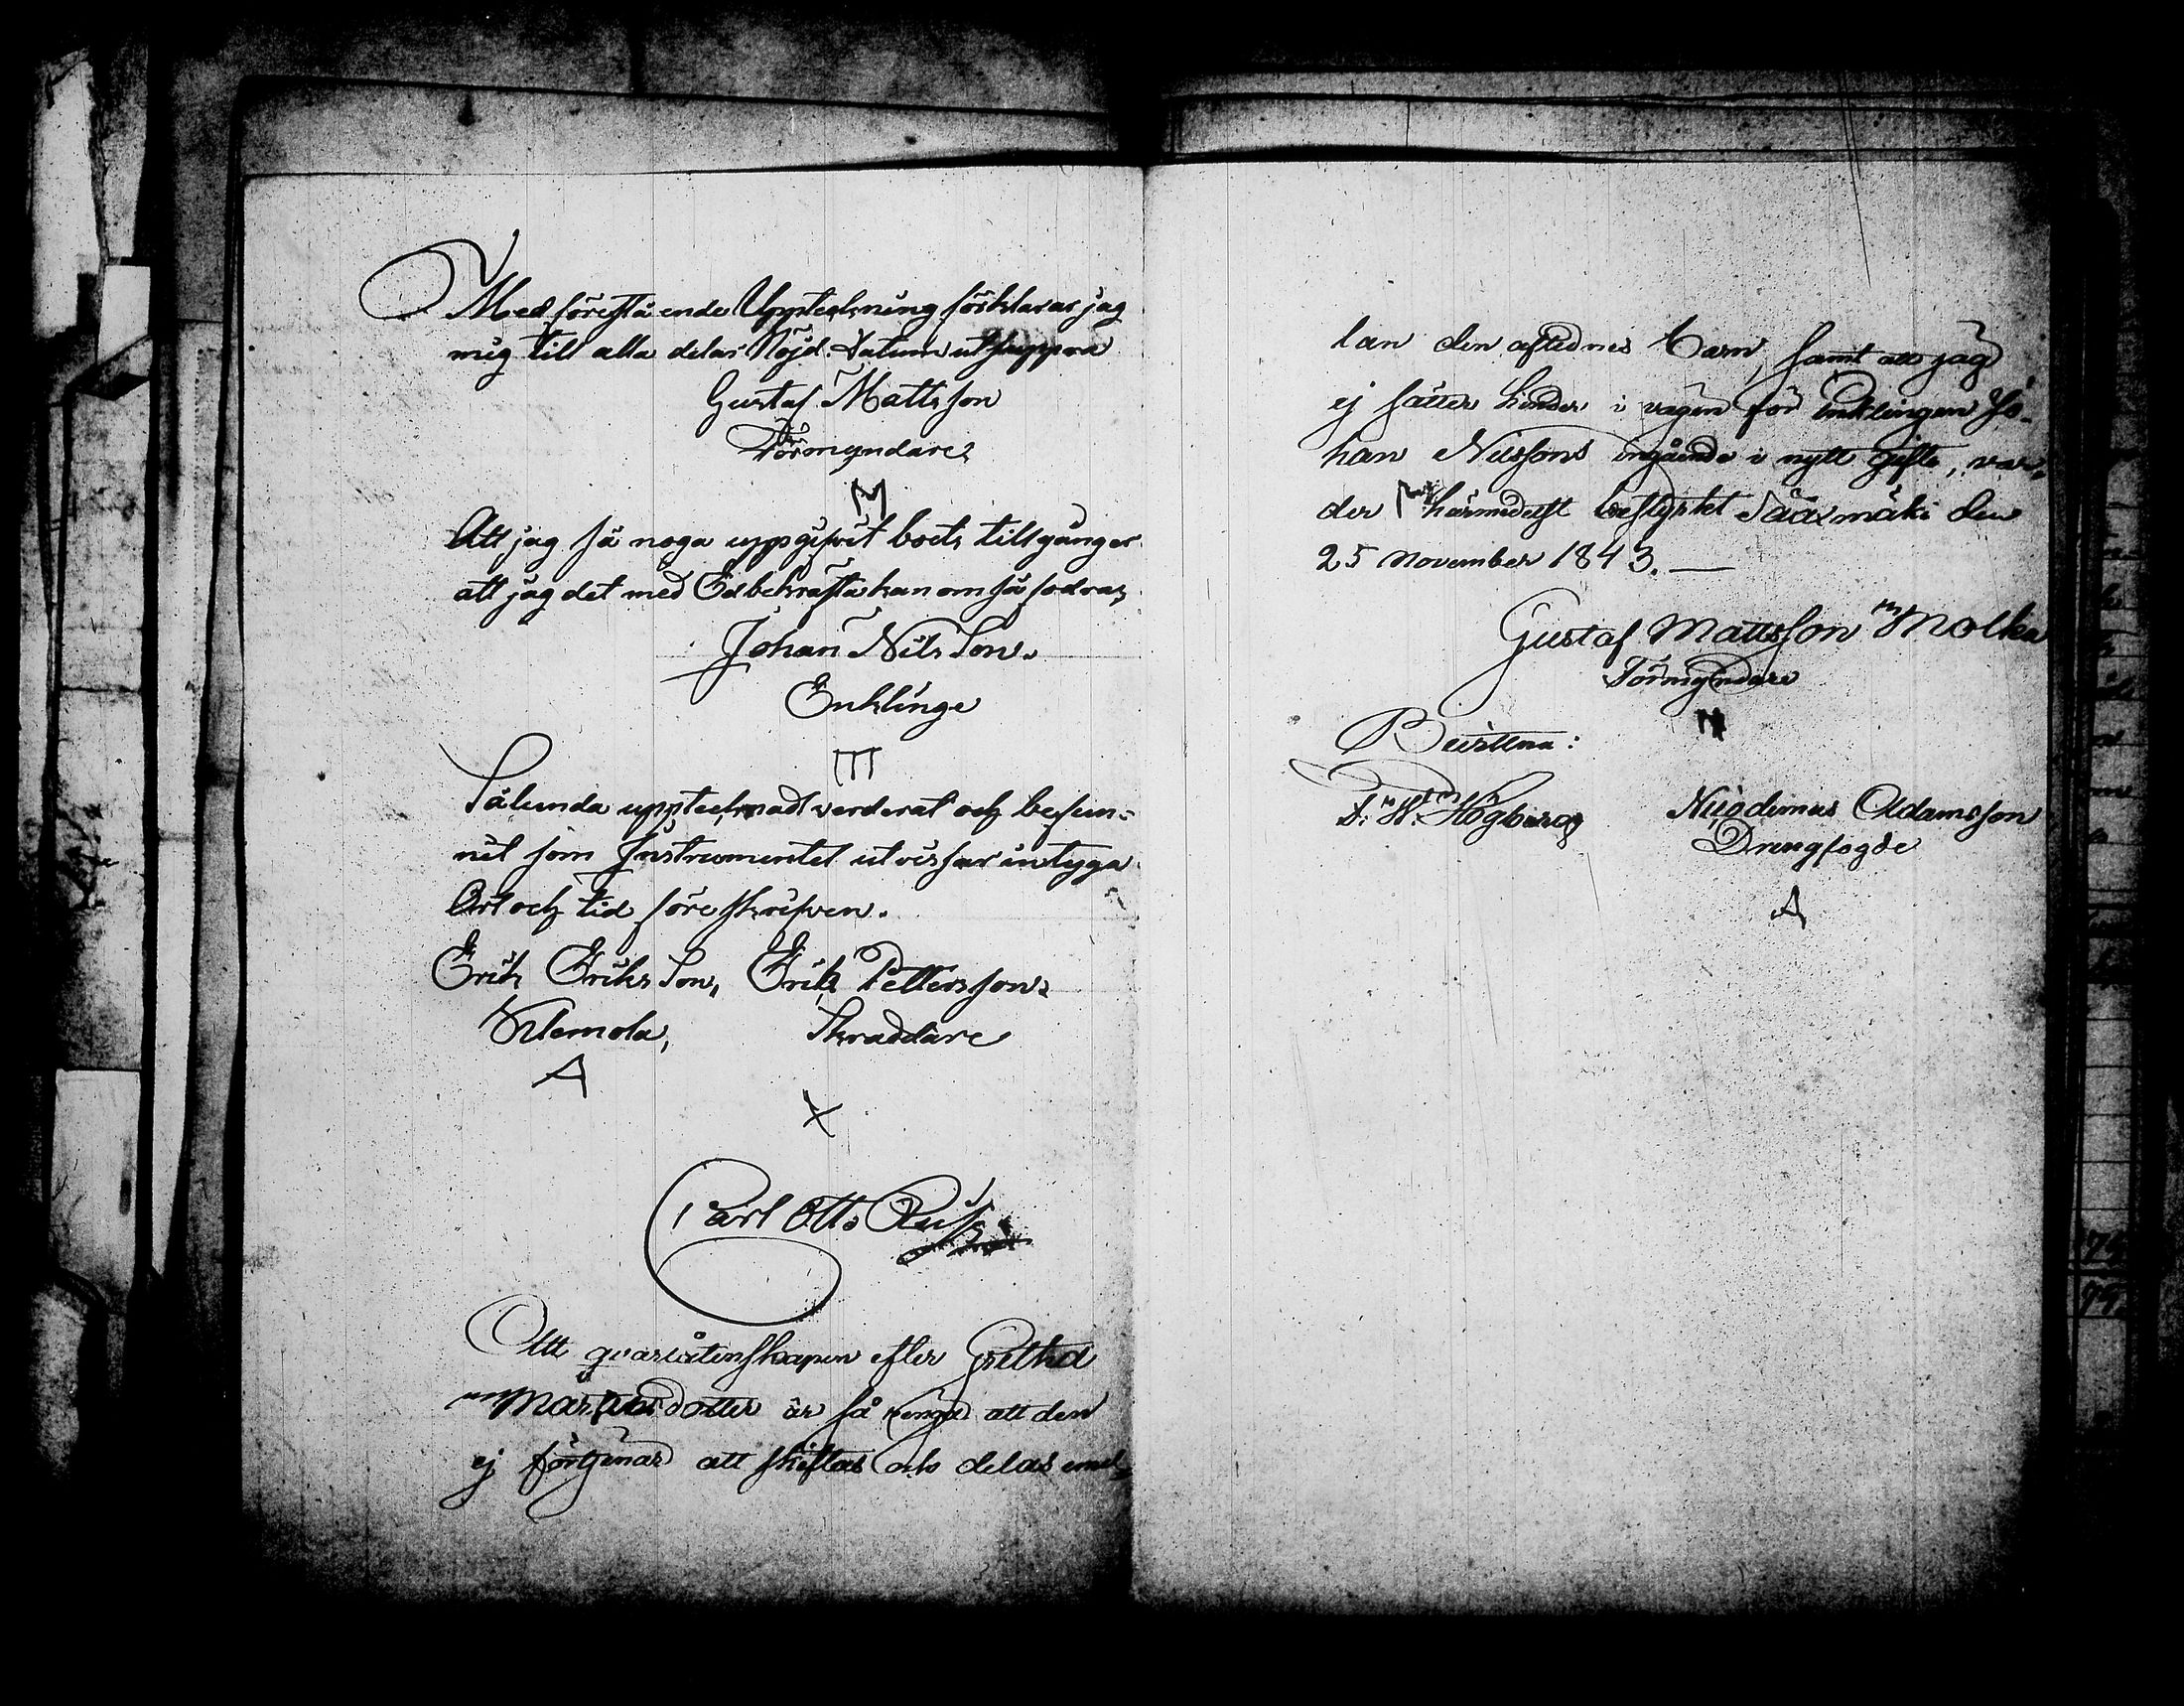 Med föreståender Uppteckning förklarar jag
mig till alla delar Nöjd. Datum ut suppra
Gustaf Mattsson
Förmyndare
M
Att jag så noga uppgifvit boets tillgånger
att jag det med Ed bekräfta kan om så fodras,
Johan Nils Son.
Enklinge
m
Sålunda upptecknadt verderat och befun-
nit som Instrumentet utvissar intyga
Ort och tidföreskrifven.
Erik Eriks Son, Erik Pettersson
Klemola, Skraddare
A
X
Carl Otto
Att qvarlåtenskapen efter Gretha
Martinsdotter är så ringa att den
ej förtjenar att skiftas och delas emel-
lan den aflednes Barn, samt att jag
ej sätter hinder i vägen för Enklingen Jo-
han Nilssons ingående i nytt gifte, var-
der härmedelst bestyrkt Sääxmäki den
25 November 1843.
Gustaf Mattsson Molka
Förmyndare
M
Bevittna:
Högberg Nicodemus Adamsson
Drengfogde
A
79
79